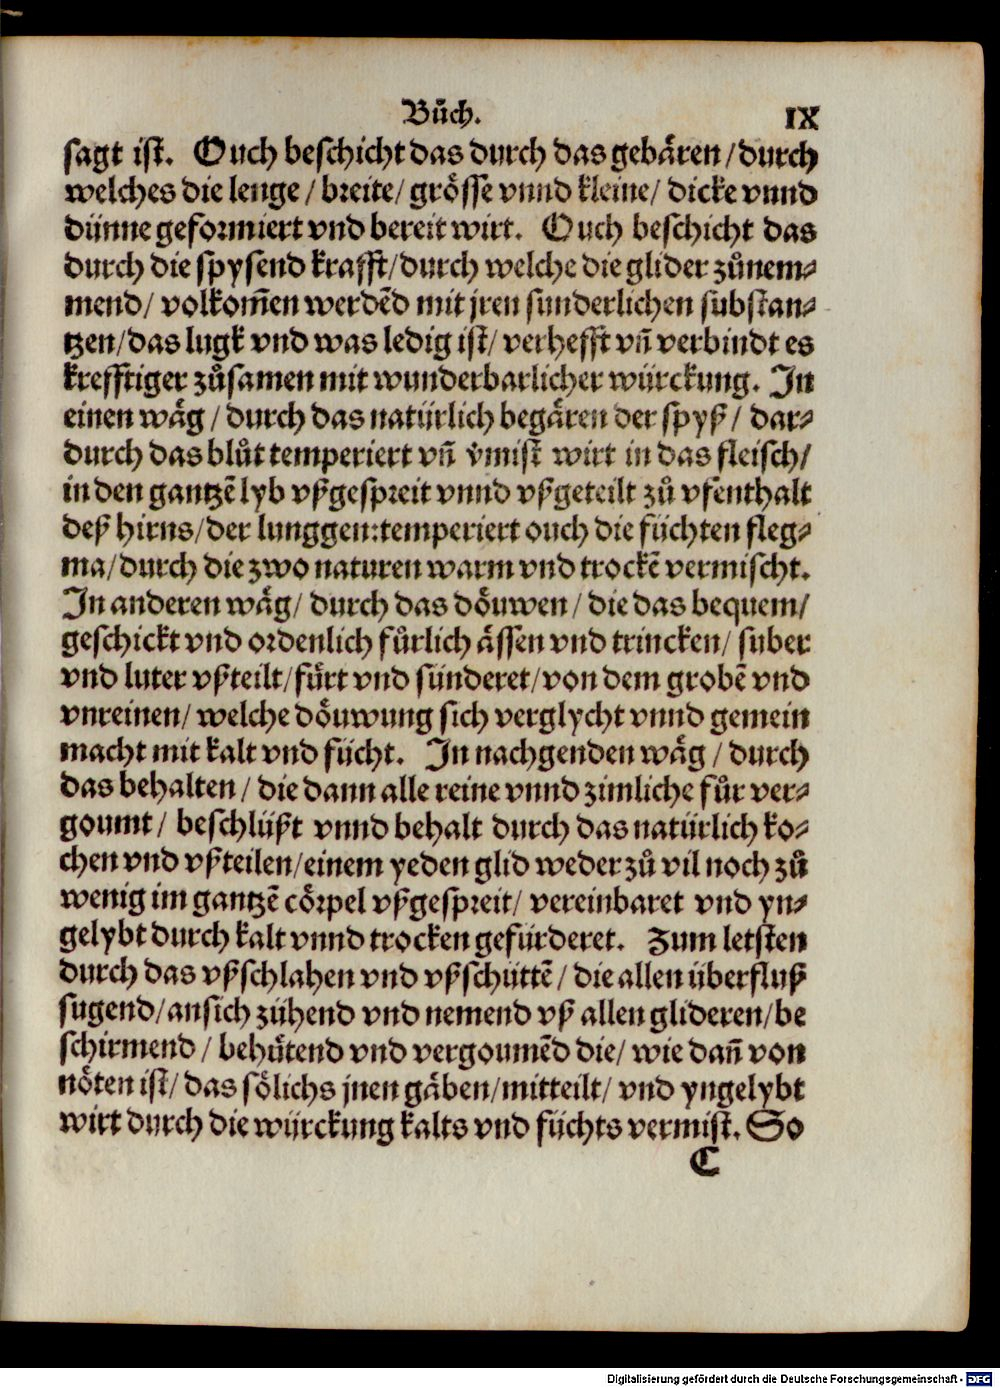 Bůch. IX
sagt ist. Ouch beschicht das durch das gebären / durch
welches die lenge / breite / grösse vnnd kleine / dicke vnnd
dünne geformiert vnd bereit wirt. Ouch beschicht das
durch die spysend krafft / durch welche die glider zůnem⸗
mend / volkom̃en werdẽd mit jren sunderlichen substan⸗
tzen / das lugk vnd was ledig ist / verhefft vñ verbindt es
krefftiger zůsamen mit wunderbarlicher würckung. In
einen wäg / durch das natürlich begären der spyß / dar⸗
durch das blůt temperiert vñ v̓mist wirt in das fleisch /
in den gantzẽ lyb vßgespreit vnnd vßgeteilt zů vfenthalt
deß hirns / der lunggen: temperiert ouch die füchten fleg⸗
ma / durch die zwo naturen warm vnd trockẽ vermischt.
In anderen wäg / durch das döuwen / die das bequem /
geschickt vnd ordenlich fůrlich ässen vnd trincken / suber
vnd luter vßteilt / fůrt vnd sünderet / von dem grobẽ vnd
vnreinen / welche döuwung sich verglycht vnnd gemein
macht mit kalt vnd fücht. In nachgenden wäg / durch
das behalten / die dann alle reine vnnd zimliche fůr ver⸗
goumt / beschlüßt vnnd behalt durch das natürlich ko⸗
chen vnd vßteilen / einem yeden glid weder zů vil noch zů
wenig im gantzẽ cörpel vßgespreit / vereinbaret vnd yn⸗
gelybt durch kalt vnnd trocken gefürderet. Zum letsten
durch das vßschlahen vnd vßschüttẽ / die allen überfluß
sugend / an sich zühend vnd nemend vß allen glideren / be
schirmend / behůtend vnd vergoumẽd die / wie dañ von
nöten ist / das sölichs jnen gäben / mitteilt / vnd yngelybt
wirt durch die würckung kalts vnd füchts vermist. So
C
Digitalisierung gefördert durch die Deutsche Forschungsgemeinschaft - DFG